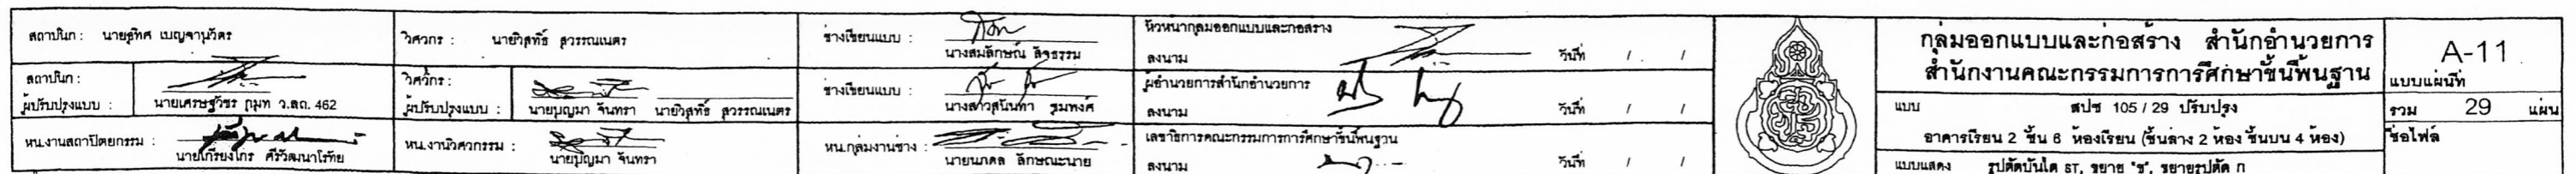 สถาปนิก : นายสุทิศ เบญจานุวัตร
สถาปนิก :
ผู้ปรับปรุงแบบ : นายเศรษฐวัชร ภูมูท ว.สถ. 462
หน.งานสถาปัตยกรรม : นายเกรียงไกร ศรีวัฒนาโรทัย
วิศวกร : นายวิสุทธิ์ สุวรรณเนตร
วิศวกร :
ผู้ปรับปรุงแบบ : นายบุญมา จันทรา นายวิสุทธิ์ สุวรรณเนตร
หน.งานวิศวกรรม : นายบุญมา จันทรา
ช่างเขียนแบบ : นางสมลักษณ์ ลิจธรรม
ช่างเขียนแบบ : นางสาวสุนันทา
หน.กลุ่มงานช่าง : นายนภดล ลักษณะนาย
หัวหน้ากลุ่มออกแบบและก่อสร้าง
ลงนาม วันที่ / /
ผู้อำนวยการสำนักอำนวยการ
ลงนาม วันที่ / /
เลขาธิการคณะกรรมการการศึกษาขั้นพื้นฐาน
ลงนาม วันที่ / /
กลุ่มออกแบบและก่อสร้าง สำนักอำนวยการ
สำนักงานคณะกรรมการการศึกษาขั้นพื้นฐาน
แบบ สปช 105 / 29 ปรับปรุง
อาคารเรียน 2 ชั้น 6 ห้องเรียน (ชั้นล่าง 2 ห้อง ชั้นบน 4 ห้อง)
แบบแสดง รูปตัดบันได ST, ขยาย "ช", ขยายรูปตัด ก
A-11
แบบแผ่นที่
รวม 29 แผ่น
ชื่อไฟล์